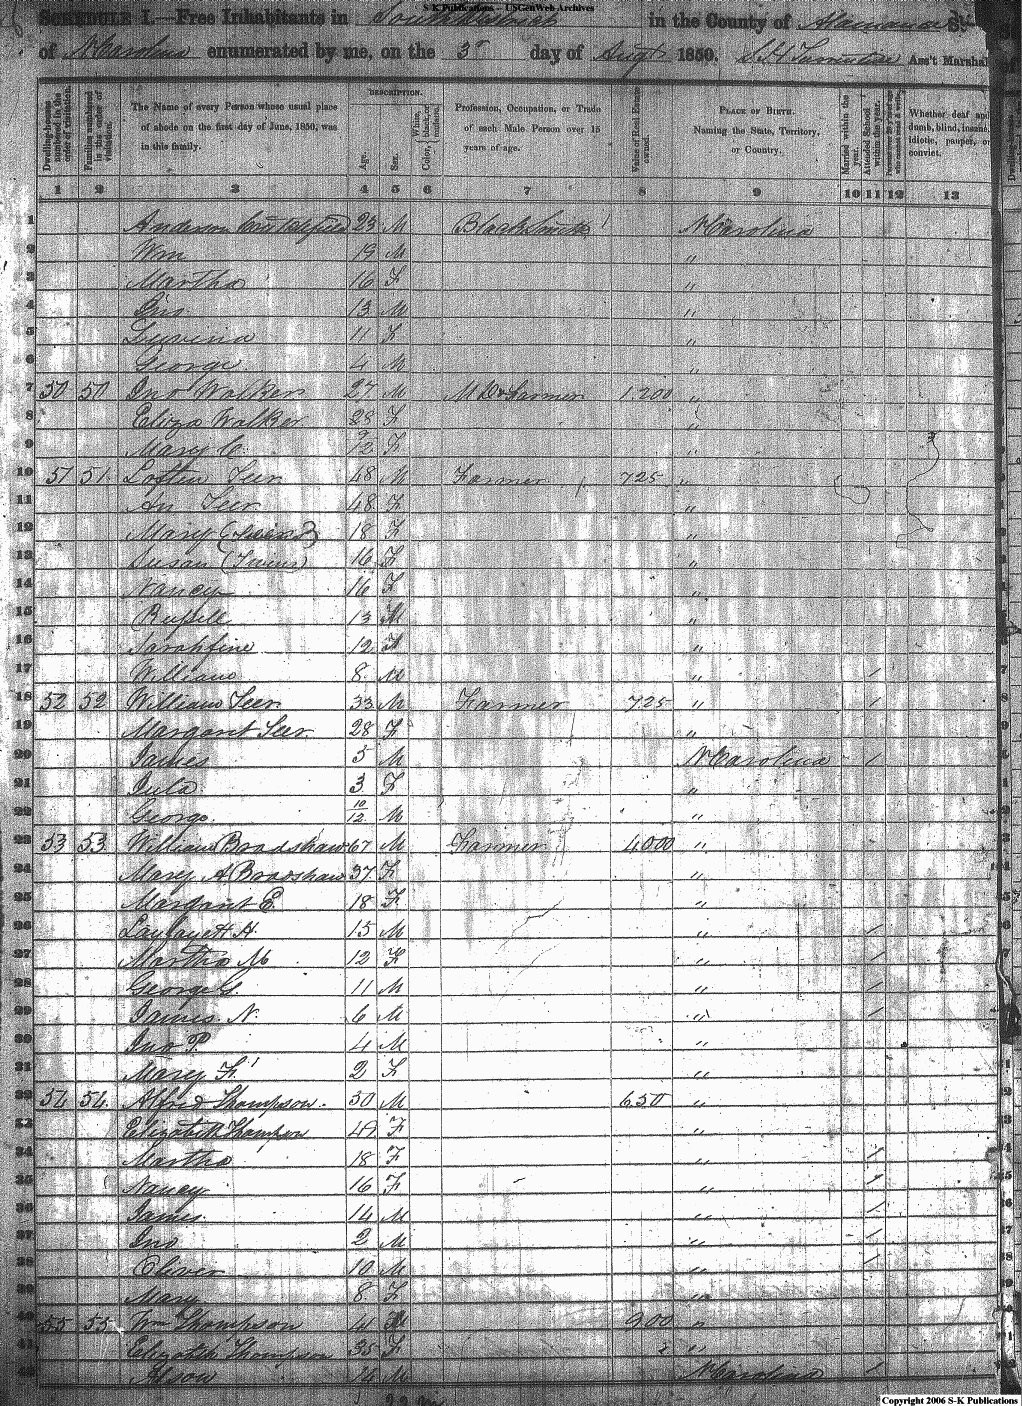 S-K Publications – USGenWeb Archives
SCHEDULE I.—Free Inhabitants in South in the County of Alamance
of N Carolina enumerated by me, on the 3d day of Augt 1850. Ass't Marshal
Dwelling-houses numbered in the order of visitation.
Families numbered in the order of visitation.
The Name of every Person whose usual place of abode on the first day of June, 1850, was in this family.
DESCRIPTION.
Age.
Sex.
Color, White, black, or mulatto.
Profession, Occupation, or Trade of each Male Person over 15 years of age.
Value of Real Estate owned.
PLACE OF BIRTH. Naming the State, Territory, or Country.
Married within the year.
Attended School within the year.
Persons over 20 y'rs of age who cannot read & write.
Whether deaf and dumb, blind, insane, idiotic, pauper, or convict.
1 2 3 4 5 6 7 8 9 10 11 12 13
1 Anderson 23 M BlackSmith N Carolina
2 Wm 19 M "
3 Martha 16 F "
4 Jno 13 M "
5 Luvina 11 F "
6 George 4 M "
7 50 50 Jno Walker 27 M M D & Farmer 1.200 "
8 Eliza Walker 28 F "
9 Mary C. 9/12 F "
10 51 51 Loften Teer 48 M Farmer 725 "
11 An Teer 48 F "
12 Mary (Twins) 18 F "
13 Susan (Twins) 16 F "
14 Nancy 16 F "
15 Russell 13 M "
16 Saraphine 12 F "
17 William 8 M " /
18 52 52 William Teer 33 M Farmer 725 " /
19 Margaret Teer 28 F "
20 James 5 M N Carolina /
21 Jula 3 F "
22 George 10/12 M "
23 53 53 William Bradshaw 67 M Farmer 4000 "
24 Mary A Bradshaw 37 F "
25 Margaret E 18 F "
26 Layfayett A 15 M " /
27 Martha M 12 F " /
28 George G. 11 M " /
29 James N. 6 M " /
30 Jno P. 4 M "
31 Mary F. 2 F "
32 54 54 Alfred Thompson 50 M 650 "
33 Elizabeth Thompson 49 F "
34 Martha 18 F " /
35 Nancy 16 F " /
36 James 14 M " /
37 Jno 2 M " /
38 Oliver 10 M " /
39 Mary 8 F "
40 55 55 Wm Thompson 41 M 900 "
41 Elizabeth Thompson 35 F "
42 Alson 14 M N Carolina /
Copyright 2006 S-K Publications